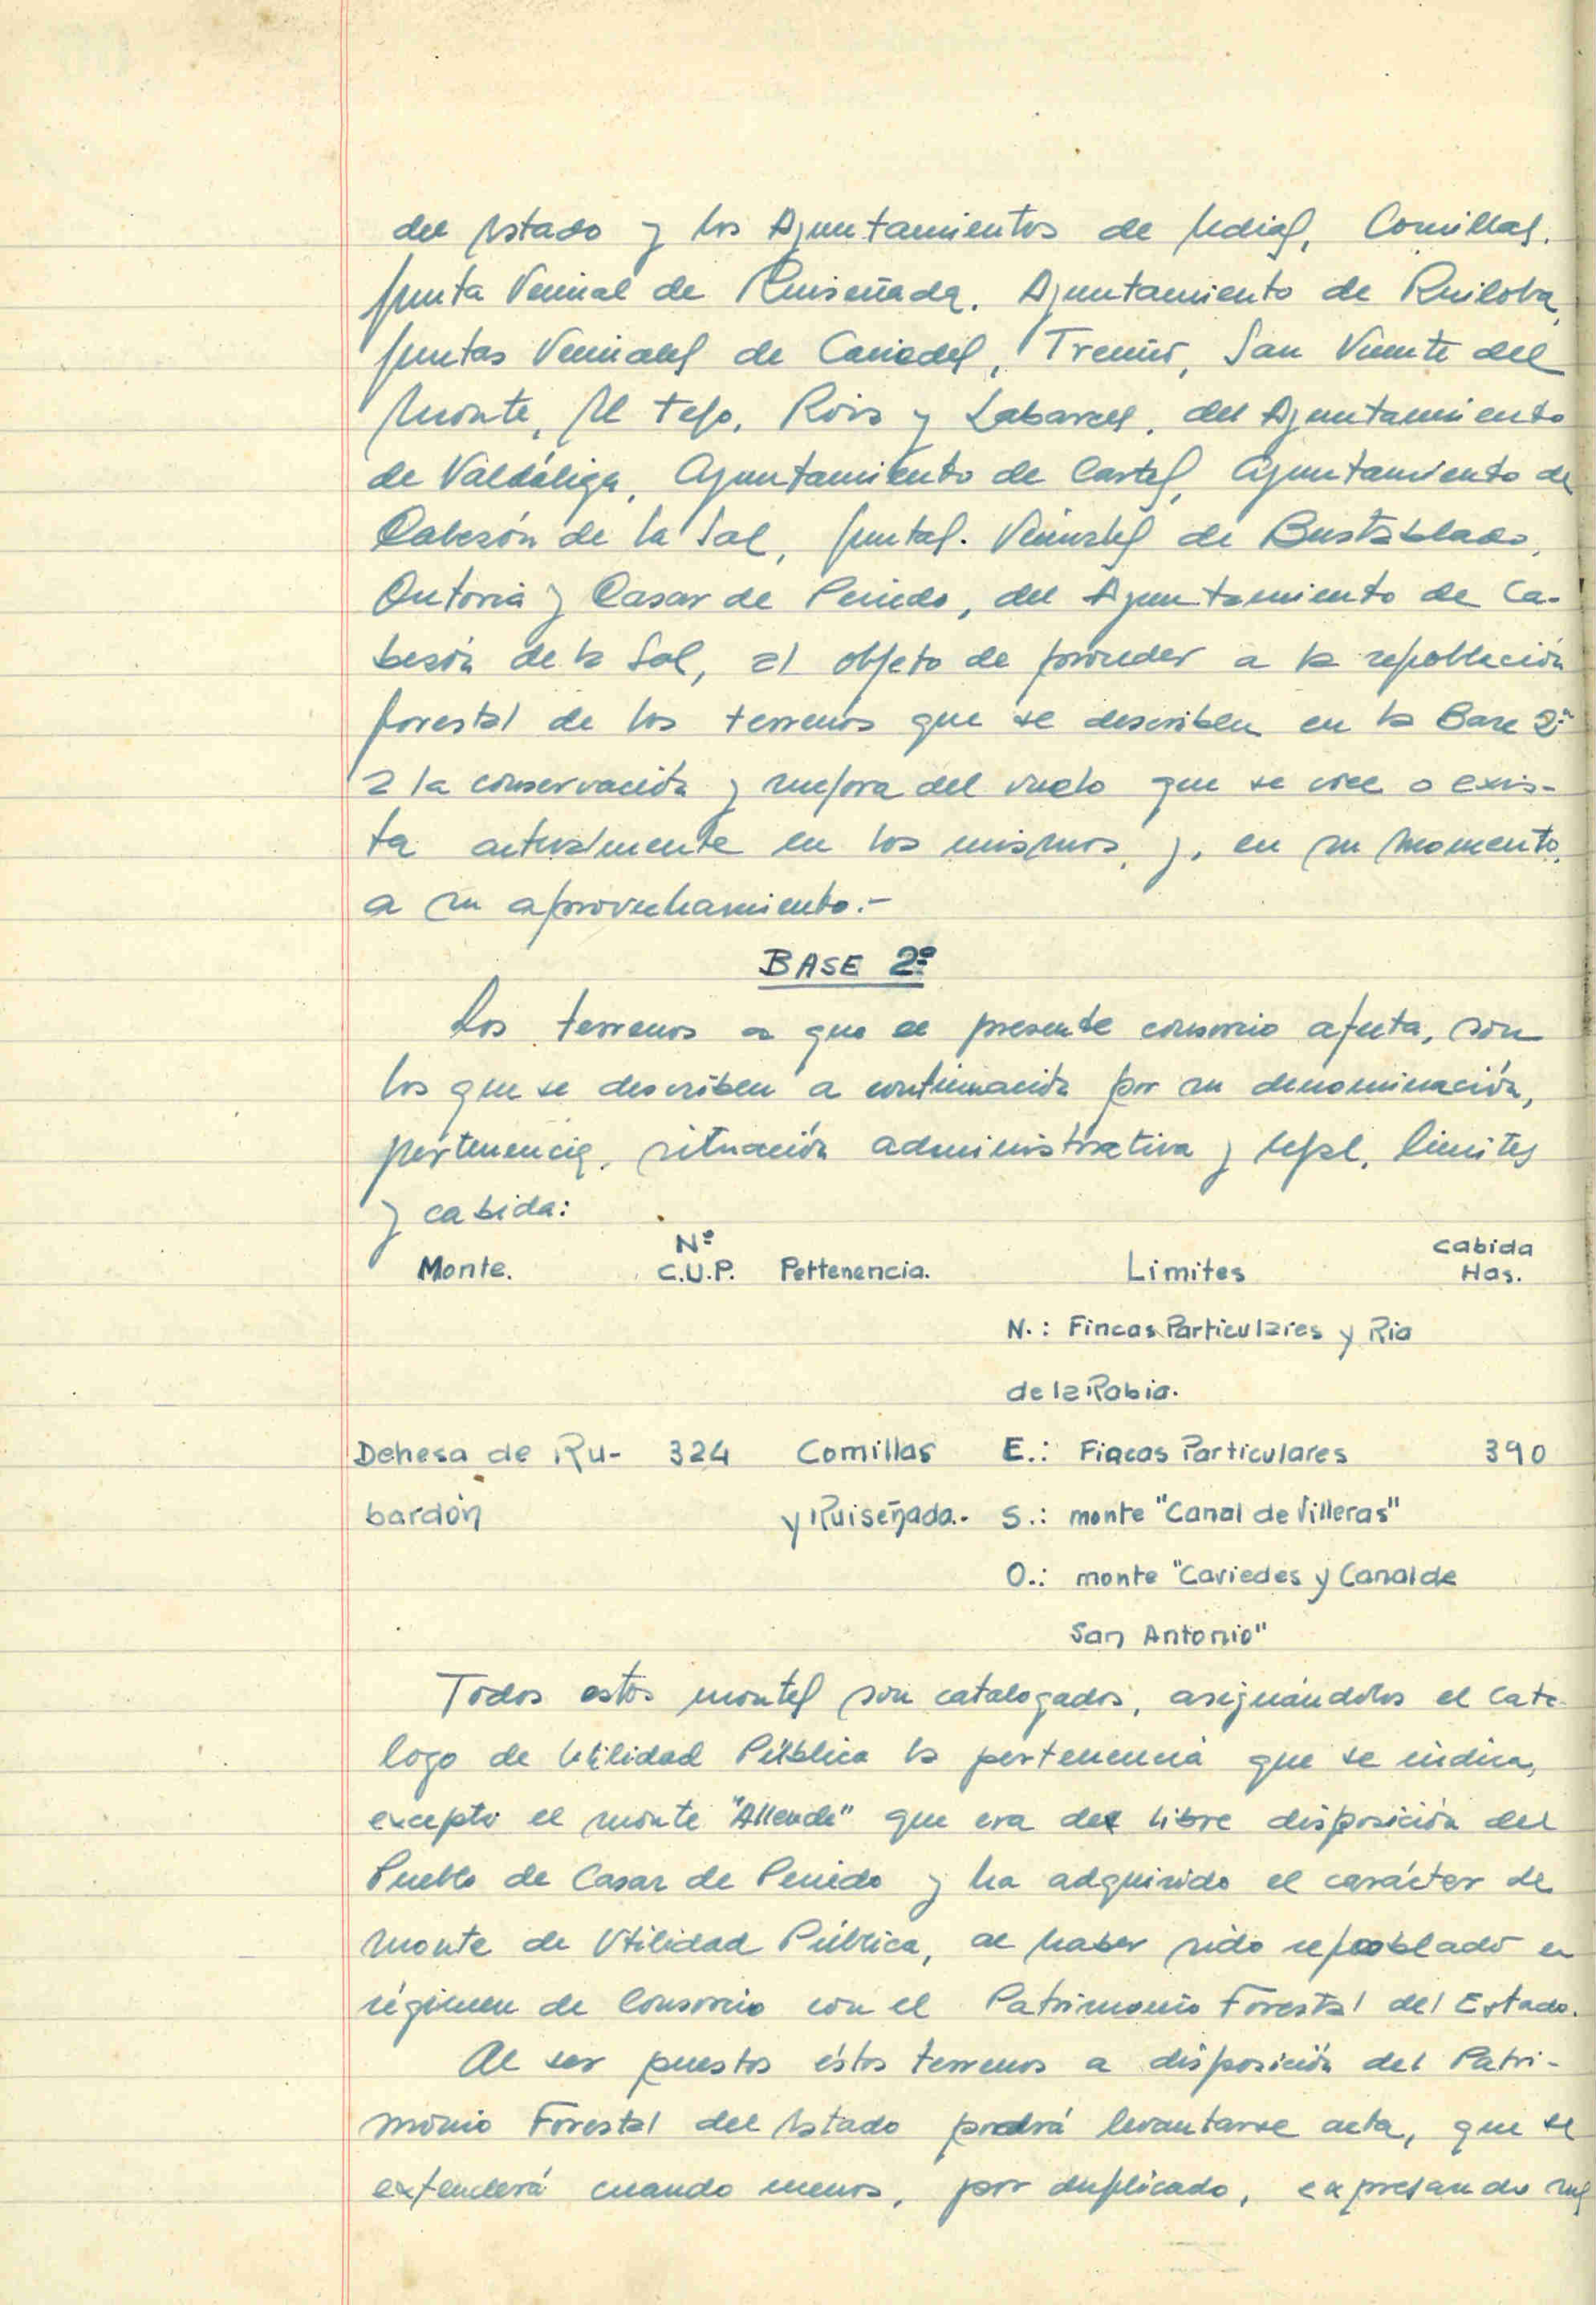 del Estado y los Ayuntamientos de Udias, Comillas,
Junta Vecinal de Ruiseñada, Ayuntamiento de Ruiloba,
Juntas Vecinales de Caviedes, Treceño, San Vicente del
Monte, El Tejo, Roiz y Labarces, del Ayuntamiento
de Valdáliga, Ayuntamiento de Cartes, Ayuntamiento de
Cabezón de la Sal, Juntas Vecinales de Bustablado,
Ontoria y Casar de Periedo, del Ayuntamiento de Ca-
bezón de la Sal, al objeto de proceder a la repoblación
forestal de los terrenos que se describen en la Base 2ª
a la conservación y mejora del vuelo que se cree o exis-
ta actualmente en los mismos, y, en su momento,
a su aprovechamiento.-
BASE 2ª
Los terrenos a que el presente consorcio afecta, son
los que se describen a continuación por su denominación,
pertenencia, situación administrativa y legal, limites
y cabida:
Nº cabida
Monte. C.U.P. Pertenencia. Limites Has.
N.: Fincas Particulares y Rio
de la Rabia.
Dehesa de Ru- 324 Comillas E.: Fincas Particulares 390
bardón y Ruiseñada.- S.: monte "Canal de Villeras"
O.: monte "Caviedes y Canal de
San Antonio"
Todos estos montes son catalogados, asignándolos el Cata-
logo de Utilidad Pública la pertenencia que se indica,
excepto el monte "Allende" que era de libre disposición del
Pueblo de Casar de Periedo y ha adquirido el carácter de
monte de Utilidad Pública, al haber sido repoblado en
régimen de Consorcio con el Patrimonio Forestal del Estado.
Al ser puestos éstos terrenos a disposición del Patri-
monio Forestal del Estado podrá levantarse acta, que se
extenderá cuando menos, por duplicado, expresando sus